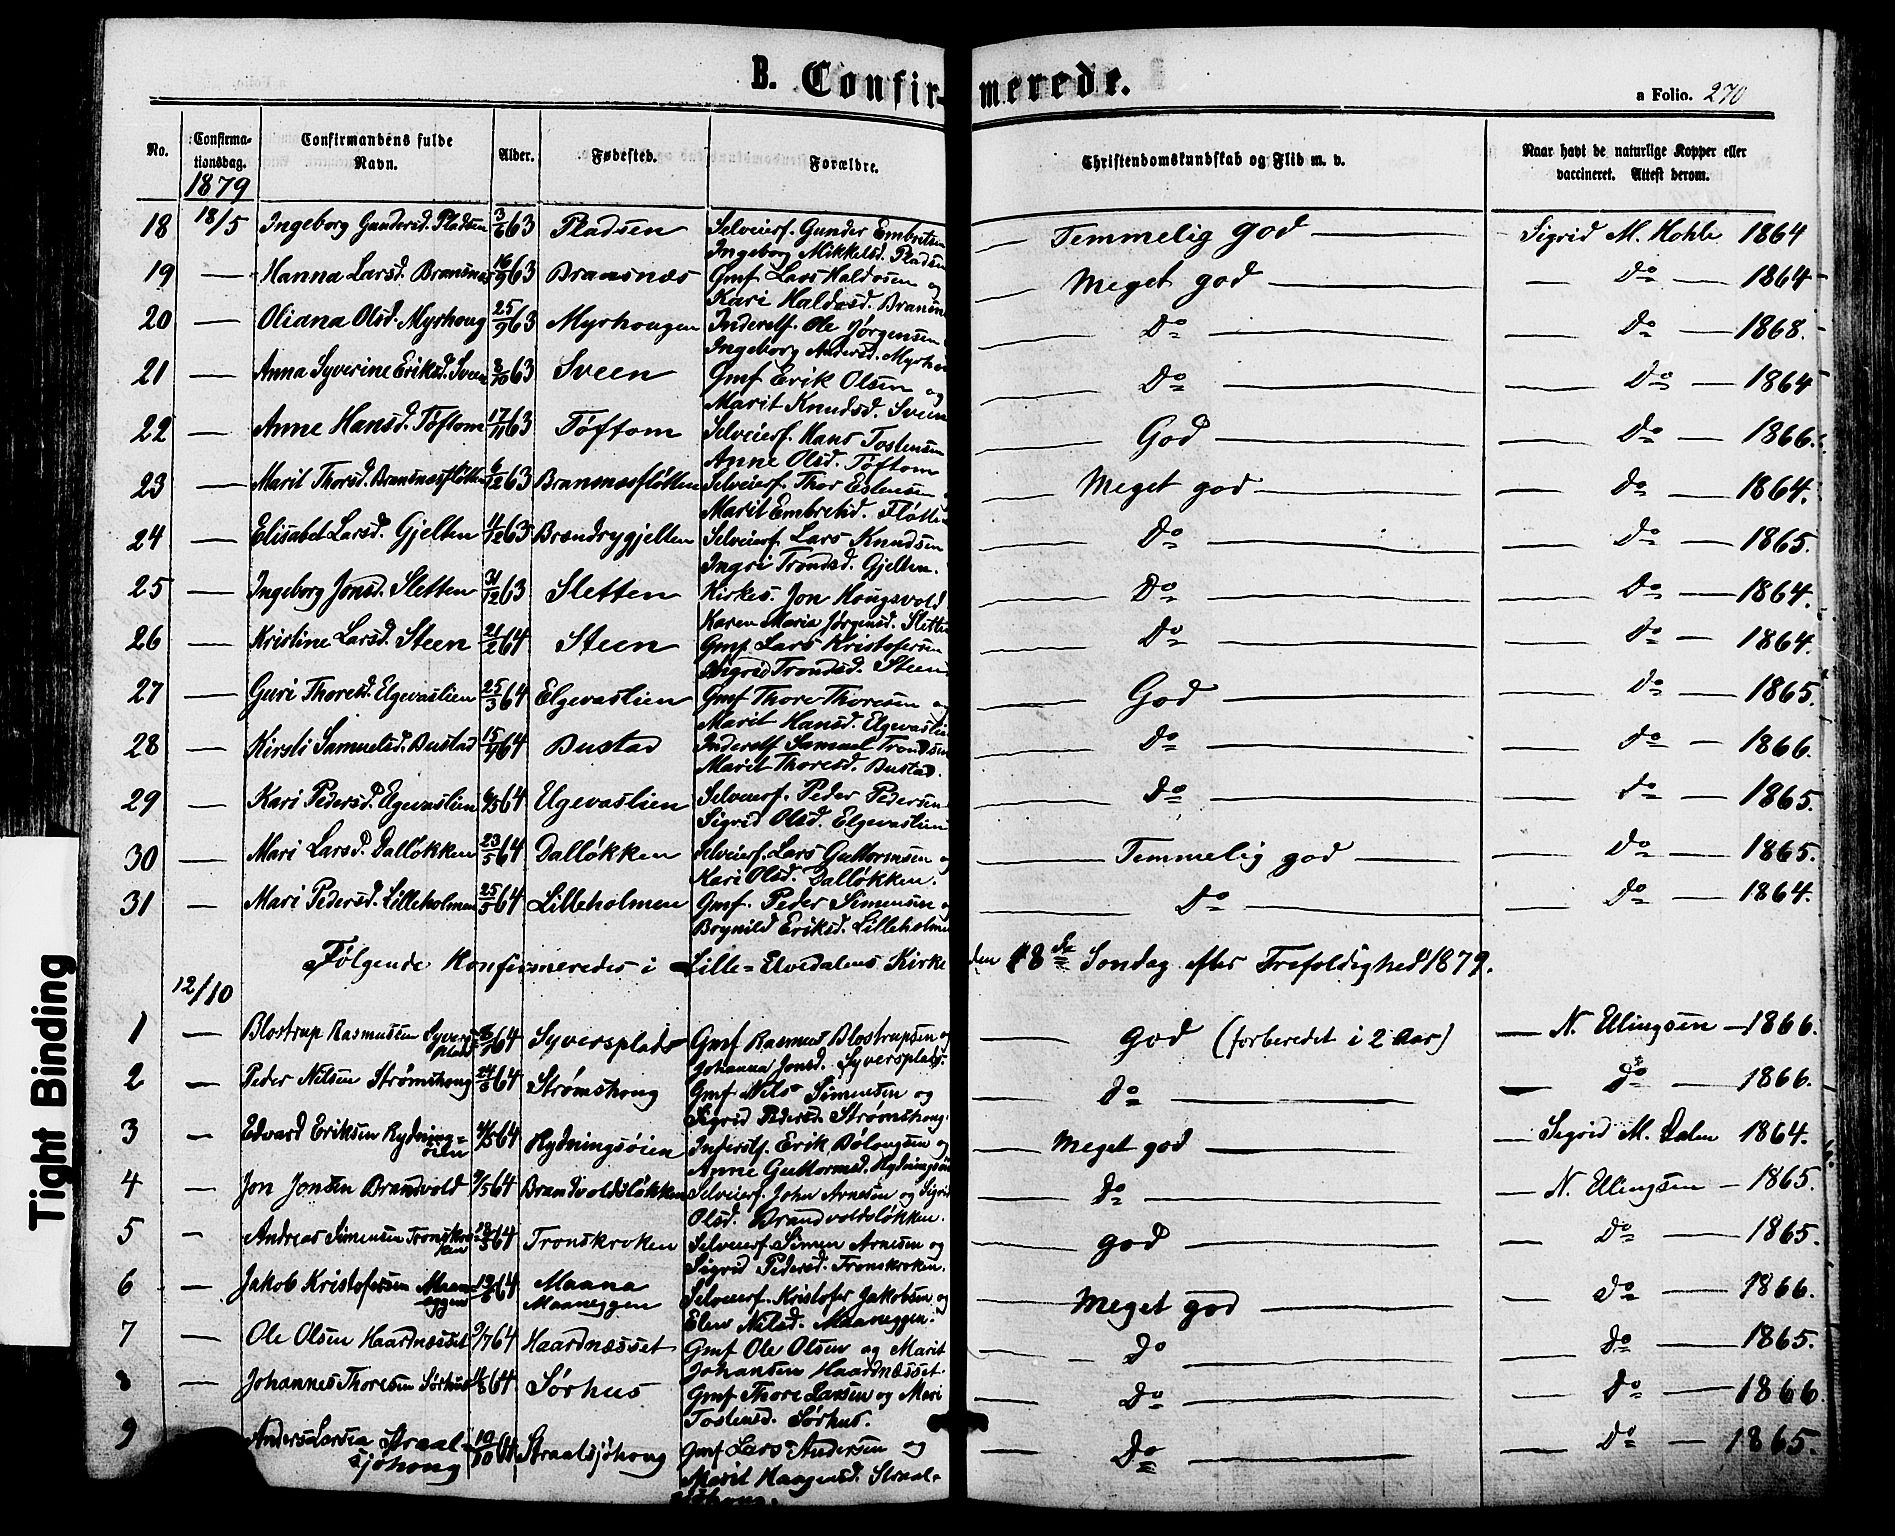 B. Confirmerede.
a Folio. 270
No.
Confirmationsdag.
Confirmandens fulde Navn.
Alder.
Fødested.
Forældre.
Christendomskundskab og Flid m. v.
Naar havt de naturlige Kopper eller vaccineret. Attest derom.
1879
18 18/5 Ingeborg Gundersd. Pladsen 3/6 63 Pladsen Selveierf. Gunder Embretsen — Temmelig god — Sigrid M. Hohle 1864
Ingeborg Mikkelsd. Pladsen
19 — Hanna Larsd. Bransnæs 16/9 63 Bransnæs Gmf Lars Haldosen og — Meget god — Do — 1864
Kari Haldosd. Bransn
20 — Oliana Olsd. Myrhoug 25/9 63 Myrhougen Inderstf. Ole Jørgensen — Do — Do — 1868.
Ingeborg Andersd. Myrhou
21 — Anna Syverine Eriksd. Sveen /10 63 Sveen Gmf Erik Olsen og — Do — Do — 1864
Marit Knudsd. Sveen
22 — Anne Hansd. Tøftom 17/11 63 Tøftom Selveierf. Hans Tostensen — God — Do — 1866.
Anne Olsd. Tøftom
23 — Marit Thorsd. Bransnæsfløtten 6/12 63 Bransnæsfløtten Selveierf. Thor Estensen — Meget god — Do — 1864.
Marit Embretsd. Fløtten
24 — Elisabet Larsd. Gjelten 11/12 63 Brændrygjelten Selveierf. Lars Knudsen — Do — Do — 1865.
Ingri Trondsd. Gjelten.
25 — Ingeborg Jonsd. Sletten 31/12 63 Sletten Kirkes. Jon Hougsvold — Do — Do — 1864.
Karen Maria Jørgensd. Slette
26 — Kristine Larsd. Steen 21/2 64 Steen Gmf. Lars Kristofersen — Do — Do — 1864.
Sigrid Trondsd. Steen
27 — Guri Thoresd. Elgevaslien 25/3 64 Elgevaslien Gmf Thore Thoresen og — God — Do — 1865.
Marit Hansd. Elgevaslie
28 — Kirsti Samuelsd. Bustad 15/4 64 Bustad Inderstf Samuel Trondsen — Do — Do — 1866
Marit Thoresd. Bustad.
29 — Kari Pedersd. Elgevaslien /5 64 Elgevaslien Selveierf. Peder Pedersen — Do — Do — 1865.
Sigrid Olsd. Elgevaslien
30 — Mari Larsd. Dalløkken 23/5 64 Dalløkken Selveierf. Lars Guttormsen og — Temmelig god — Do — 1865.
Kari Olsd. Dalløkken.
31 — Mari Pedersd. Lilleholmen 25/5 64 Lilleholmen Gmf. Peder Simensen — Do — Do — 1864.
Brynild Eriksd. Lilleholmen
Følgende Konfirmeredes i Lille-Elvedalens Kirke den 18de Søndag efter Trefoldighed 1879.
12/10
1 — Blostrup Rasmussen Syversplads 64 Syversplads Gmf Rasmus Blostrupsen og — god (forberedet i 2 Aar) — N. Ellingsen — 1866.
Johanna Jonsd. Syversplads.
2 — Peder Nilsen Strømshoug 24/3 64 Strømshoug Gmf Nils Simensen og — Do — Do — 1866.
Sigrid Pedersd. Strømshoug.
3 — Edvard Eriksen Rydningsøien /5 64 Rydningsøien Inderstf. Erik Bølongsen og — Meget god — Sigrid M. Dalen 1864.
Anne Guttormsd. Rydningsøi
4 — Jon Jonsen Brandvold /5 64 Brandvoldsløkken Selveierf. John Arnesen og Sigrid — Do — N. Ellingsen — 1865.
Olsd. Brandvoldsløkken.
5 — Andreas Simensen Tronskroken 18/5 64 Tronskroken Selveierf. Simen Arnesen og — god — Do — 1865.
Sigrid Pedersd. Tronskroken.
6 — Jakob Kristofersen Maaneggen 19/6 64 Maana Maaneggen Selveierf. Kristofer Jakobsen og — Meget god — Do — 1866.
Elen Nilsd. Maaneggen.
7 — Ole Olsen Haardnæsset 9/7 64 Haardnæsset Gmf Ole Olsen og Marit — Do — Do — 1865.
Johansen Haardnæsset.
8 — Johannes Thoresen Sørhus /8 64 Sørhus Gmf Thore Larsen og Mari — Do — Do — 1866
Tostensd. Sørhus.
9 Anders Larsen Straalsjøhoug 10/10 64 Straalsjøhoug Gmf Lars Andersen og — Do — Do — 1865.
Marit Haagensd. Straal-
sjøhoug.
Tight Binding